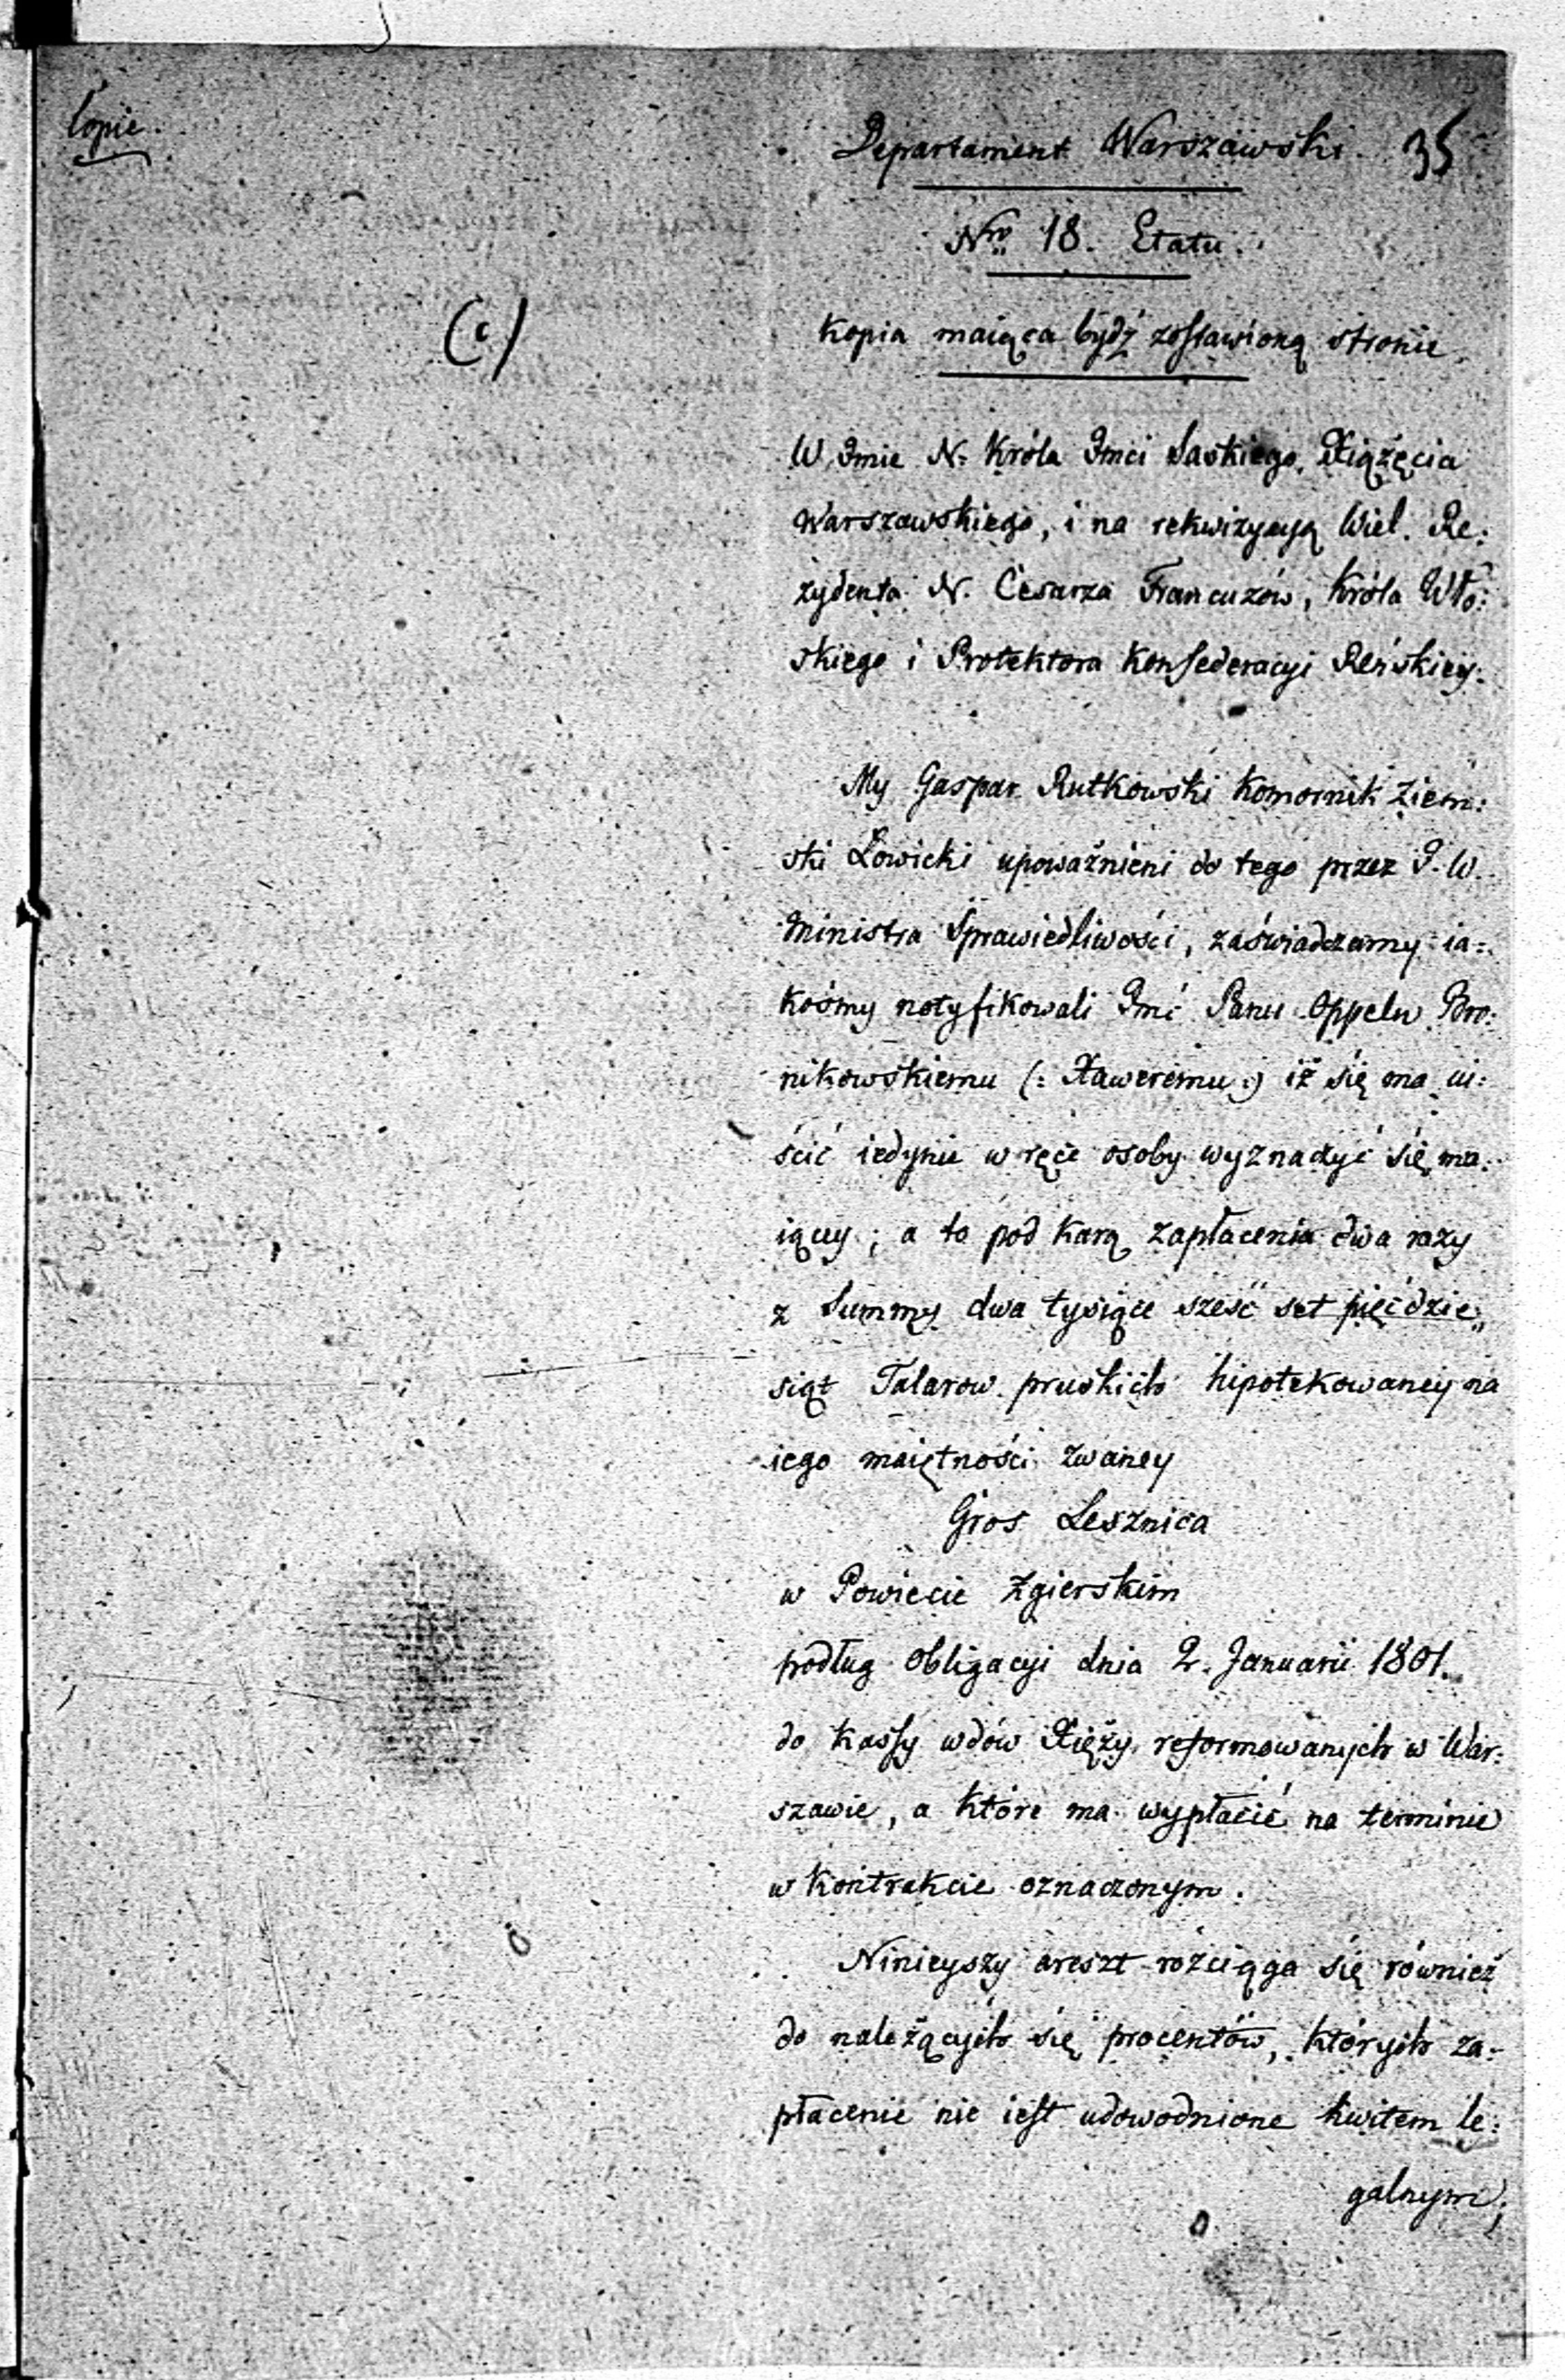 Copie.
Departament Warszawski. 35
Nro 18. Etatu.
(c)
Kopia maiąca bydź zostawioną stronie.
W Imie N. Króla Imci Saskiego, Xiążęcia
Warszawskiego, i na rekwizycyą Wiel. Re:
zydenta N. Cesarza Francuzów, Króla Wło:
skiego i Protektora Konfederacyi Reńskiey.
My Gaspar Rutkowski Komornik Ziem:
ski Łowicki upoważnieni do tego przez J. W.
Ministra Sprawiedliwości, zaświadczamy ia:
kośmy notyfikowali Imć Panu Oppeln Bro:
nikowskiemu (: Xaweremu :) iż się ma ui:
ścić iedynie w ręce osoby wyznaczyć się ma:
iącey; a to pod karą zapłacenia dwa razy
z Summy dwa tysiące sześć set pięćdzie„
siąt Talarow pruskich hipotekowaney na
iego maiętności zwaney
Gros Lesznica
w Powiecie Zgierskim
podług obligacyi dnia 2. Januarii 1801.
do kassy wdów Xięży reformowanych w War:
szawie, a które ma wypłacić na terminie
w kontrakcie oznaczonym.
Ninieyszy areszt rozciąga się również
do należących się procentów, których za:
płacenie nie iest udowodnione kwitem le:
galnym;